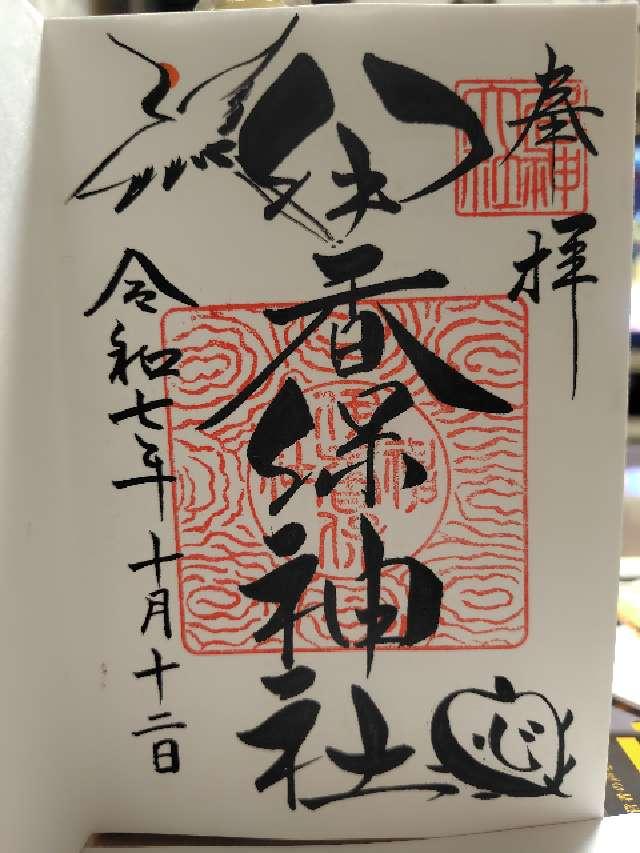 奉拝
伊香保神社
令和七年十月十二日
心